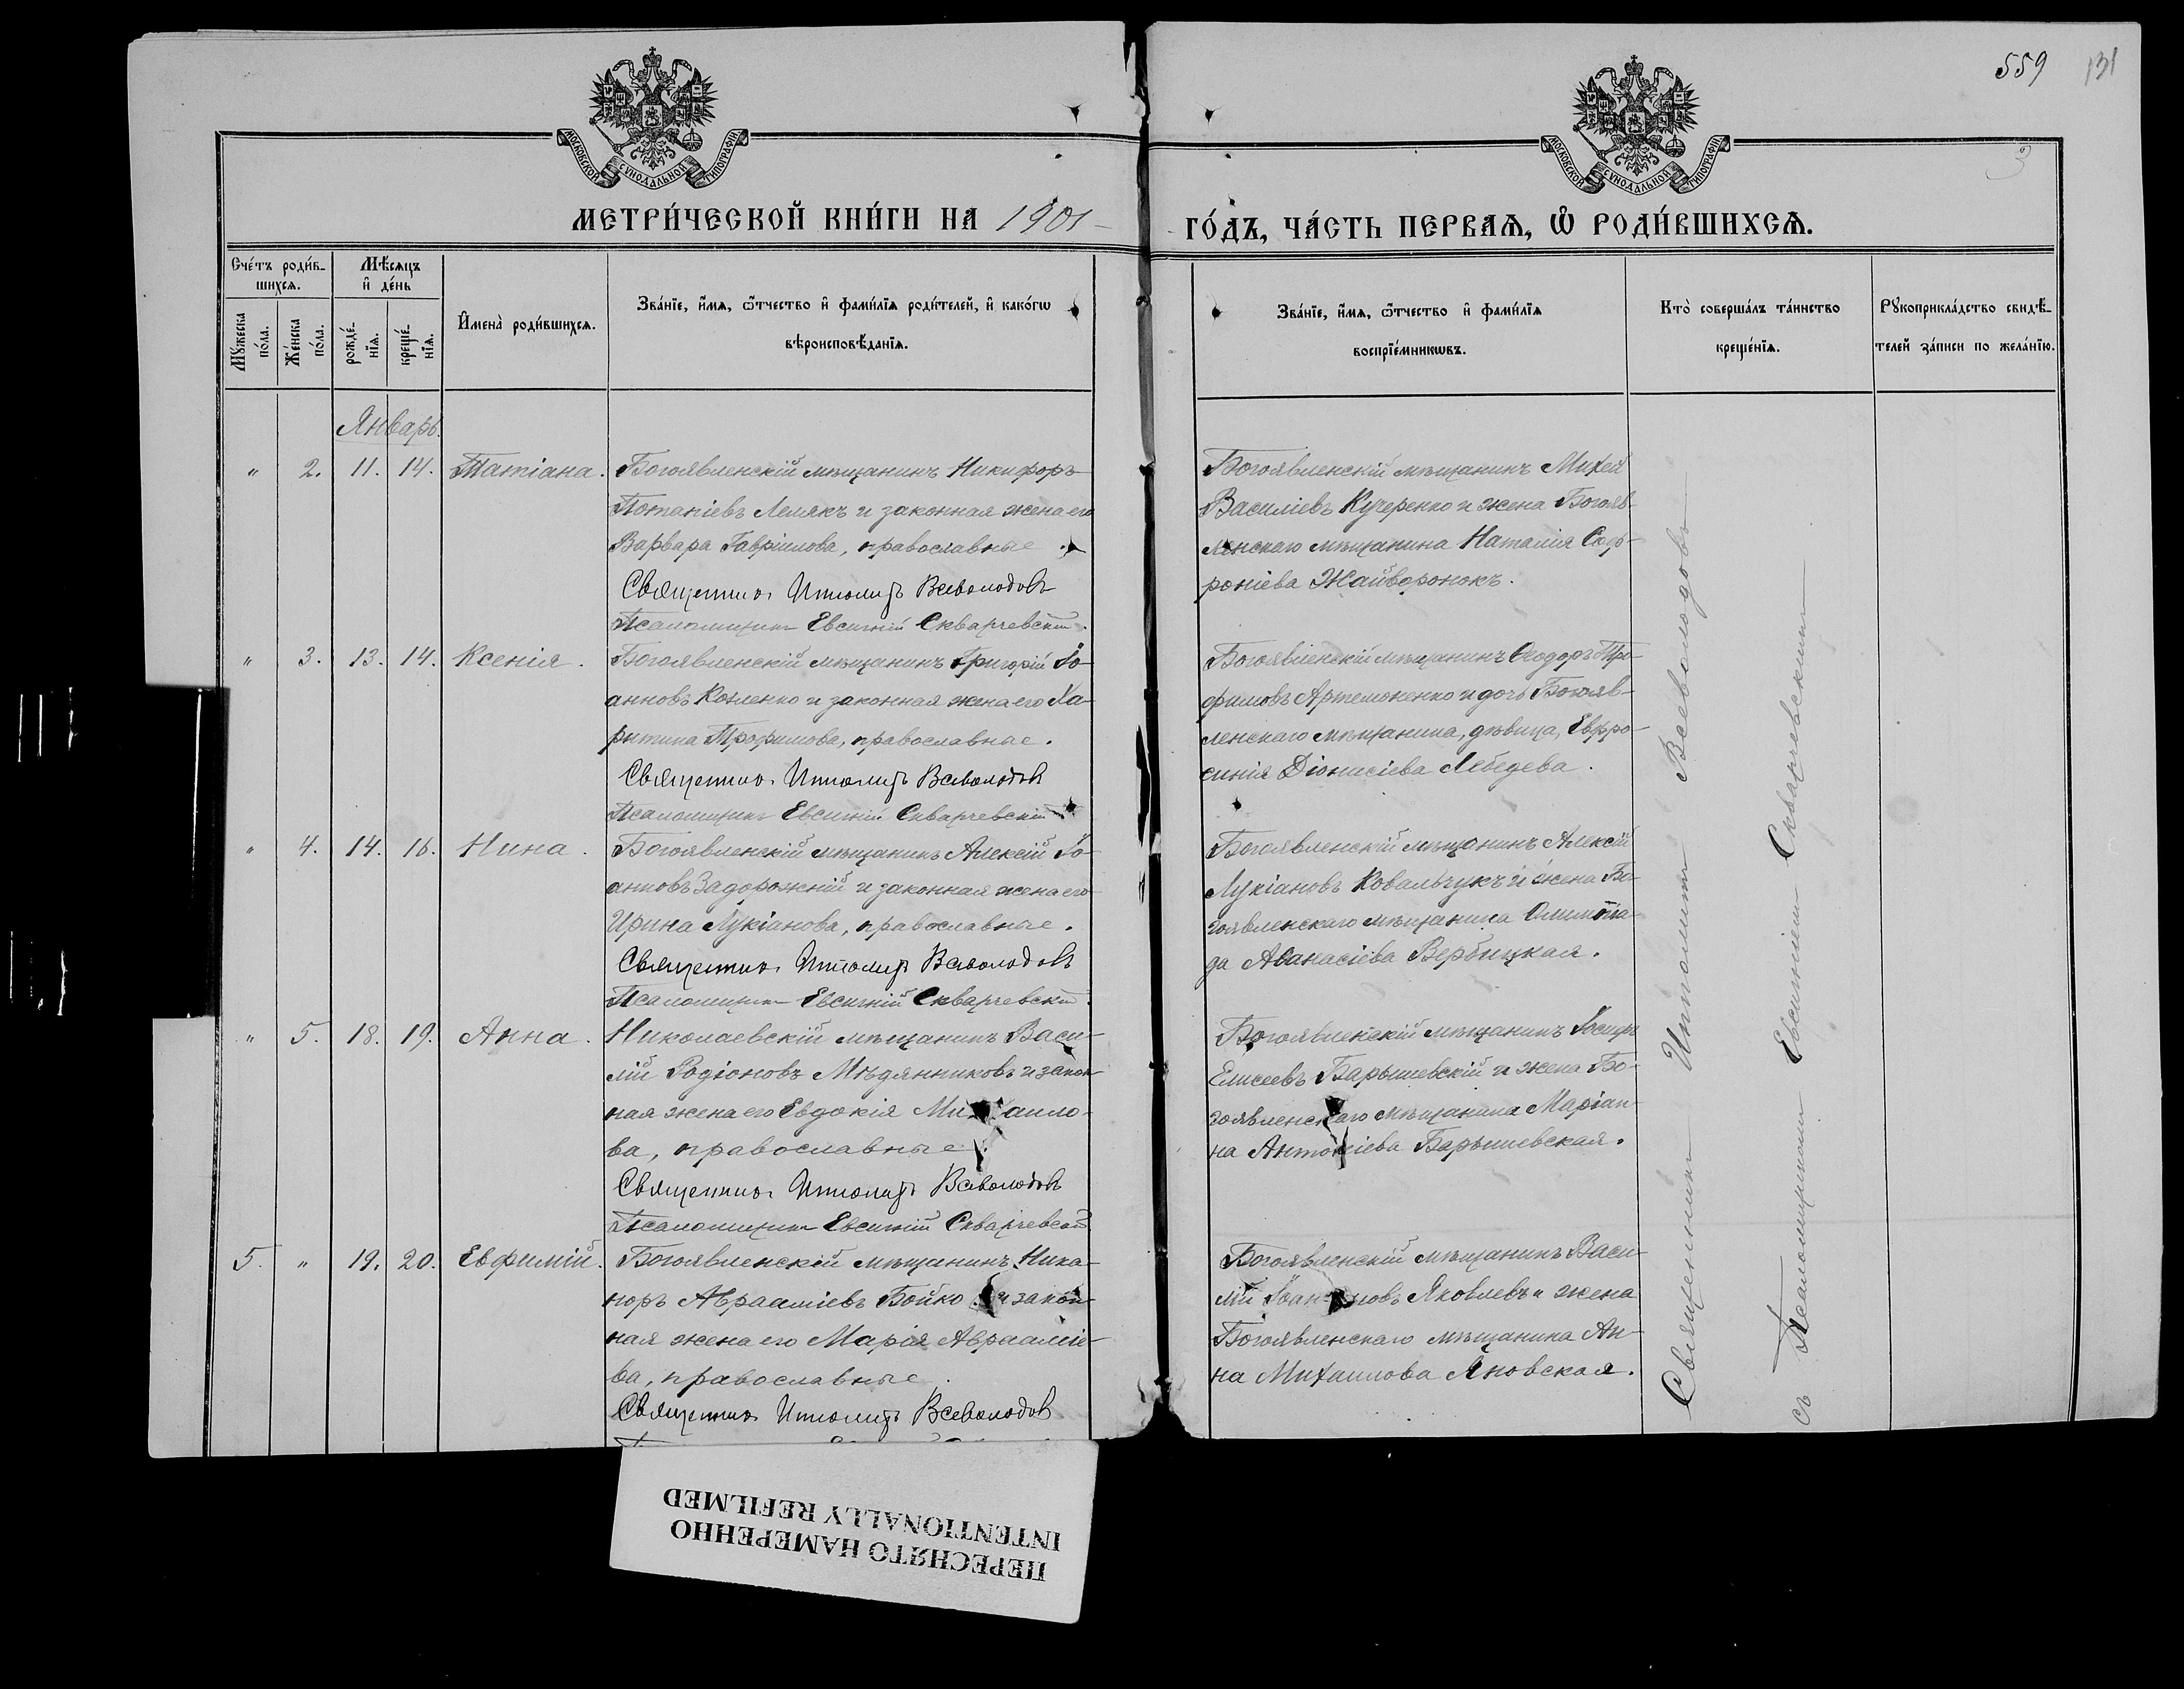 559 131
МОСКОВСКОЙ СѴНОДАЛЬНОЙ ТИПОГРАФІИ
МОСКОВСКОЙ СѴНОДАЛЬНОЙ ТИПОГРАФІИ
3
МЕТРИ́ЧЕСКОЙ КНИ́ГИ НА 1901
ГО́ДЪ, ЧА́СТЬ ПЕРВАѦ, Ѡ҆ РОДИ́ВШИХСѦ.
Сче́тъ роди́в-
шихсѧ.
Мѣ́сѧцъ
и҆ де́нь
Мꙋжеска
по́ла.
Же́нска
по́ла.
рожде́-
нїѧ.
креще́-
нїѧ.
И҆мена̀ роди́вшихсѧ.
Зва́нїе, и҆́мѧ, ѿтчество и҆ фами́лїѧ роди́телей, и҆ како́гѡ
вѣроисповѣ́данїѧ.
Зва́нїе, и҆́мѧ, ѿтчество и҆ фами́лїѧ
воспрїе́мникѡвъ.
Кто̀ соверша́лъ та́инство
креще́нїѧ.
Рꙋкоприкла́дство свидѣ́-
телей за́писи по жела́нїю.
Январь.
" 2. 11. 14. Татіана.
Богоявленскій мѣщанинъ Никифоръ
Потапіевъ Лемякъ и законная жена его
Варвара Гавріилова, православные
Священникъ Ипполитъ Всеволодовъ
Псаломщикъ Евсигній Скварчевскій.
Богоявленскій мѣщанинъ Михей
Василіевъ Кучеренко и жена Богояв-
ленскаго мѣщанина Наталія Соф-
роніева Жайворонокъ.
" 3. 13. 14. Ксенія.
Богоявленскій мѣщанинъ Григорій Іо-
анновъ Козленко и законная жена его Ха-
ритина Трофимова, православные.
Священникъ Ипполитъ Всеволодовъ
Псаломщикъ Евсигній Скварчевскій
Богоявленскій мѣщанинъ Ѳеодоръ Тро-
фимовъ Артемоненко и дочь Богояв-
ленскаго мѣщанина, дѣвица, Евфро-
синія Діонисіева Лебедева.
" 4. 14. 16. Нина.
Богоявленскій мѣщанинъ Алексій Іо-
анновъ Задорожній и законная жена его
Ирина Лукіанова, православные.
Священникъ Ипполитъ Всеволодовъ
Псаломщикъ Евсигній Скварчевскій.
Богоявленскій мѣщанинъ Алексій
Лукіановъ Ковальчукъ и жена Бо-
гоявленскаго мѣщанина Олимпіа-
да Аѳанасіева Вербицкая.
" 5. 18. 19. Анна.
Николаевскій мѣщанинъ Васи-
лій Родіоновъ Мѣдянниковъ и закон-
ная жена его Евдокія Михаило-
ва, православные.
Священникъ Ипполитъ Всеволодовъ
Псаломщикъ Евсигній Скварчевскій
Богоявленскій мѣщанинъ Іосифъ
Елисеевъ Барышевскій и жена Бо-
гоявленскаго мѣщанина Маріан-
на Антоніева Барышевская.
5. " 19. 20. Евфимій.
Богоявленскій мѣщанинъ Ника-
норъ Авраміевъ Бойко и закон-
ная жена его Марія Авраамie-
ва, православные.
Священникъ Ипполитъ Всеволодовъ
Богоявленскій мѣщанинъ Васи-
лій Іоанновъ Яковлевъ и жена
Богоявленскаго мѣщанина Ан-
на Михаилова Яновская.
Священникъ Ипполитъ Всеволодовъ
съ Псаломщикомъ Евсигніемъ Скварчевскимъ
ПЕРЕСНЯТО НАМЕРЕННО
INTENTIONALLY REFILMED